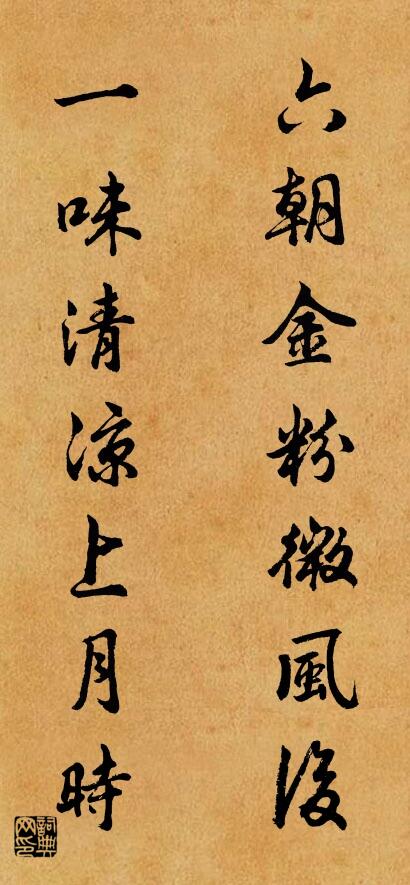 六朝金粉微風後
一味清涼上月時
詞典网印